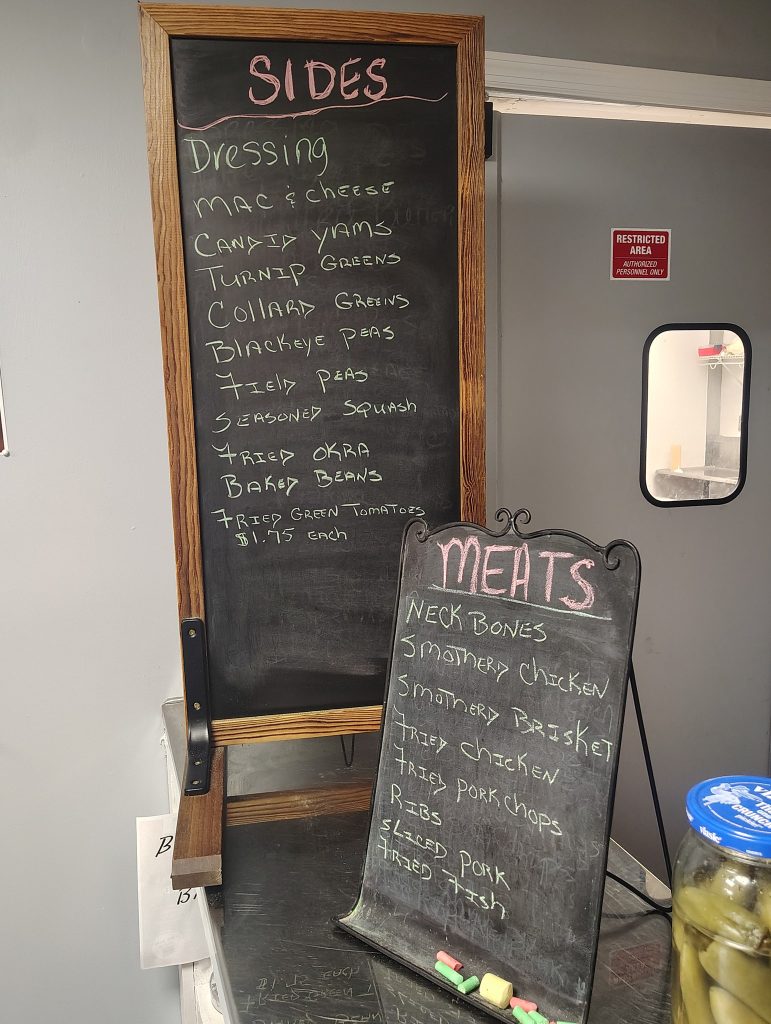 SIDES
Dressing
MAC & CHEESE
CANDID YAMS
TURNIP GREENS
COLLARD GREENS
BLACKEYE PEAS
FIELD PEAS
SEASONED SQUASH
FRIED OKRA
BAKED BEANS
FRIED GREEN TOMATOES
$1.75 EACH
RESTRICTED
AREA
AUTHORIZED
PERSONNEL ONLY
MEATS
NECK BONES
SMOTHERD CHICKEN
SMOTHERD BRISKET
FRIED CHICKEN
FRIED PORKCHOPS
RIBS
SLICED PORK
FRIED FISH